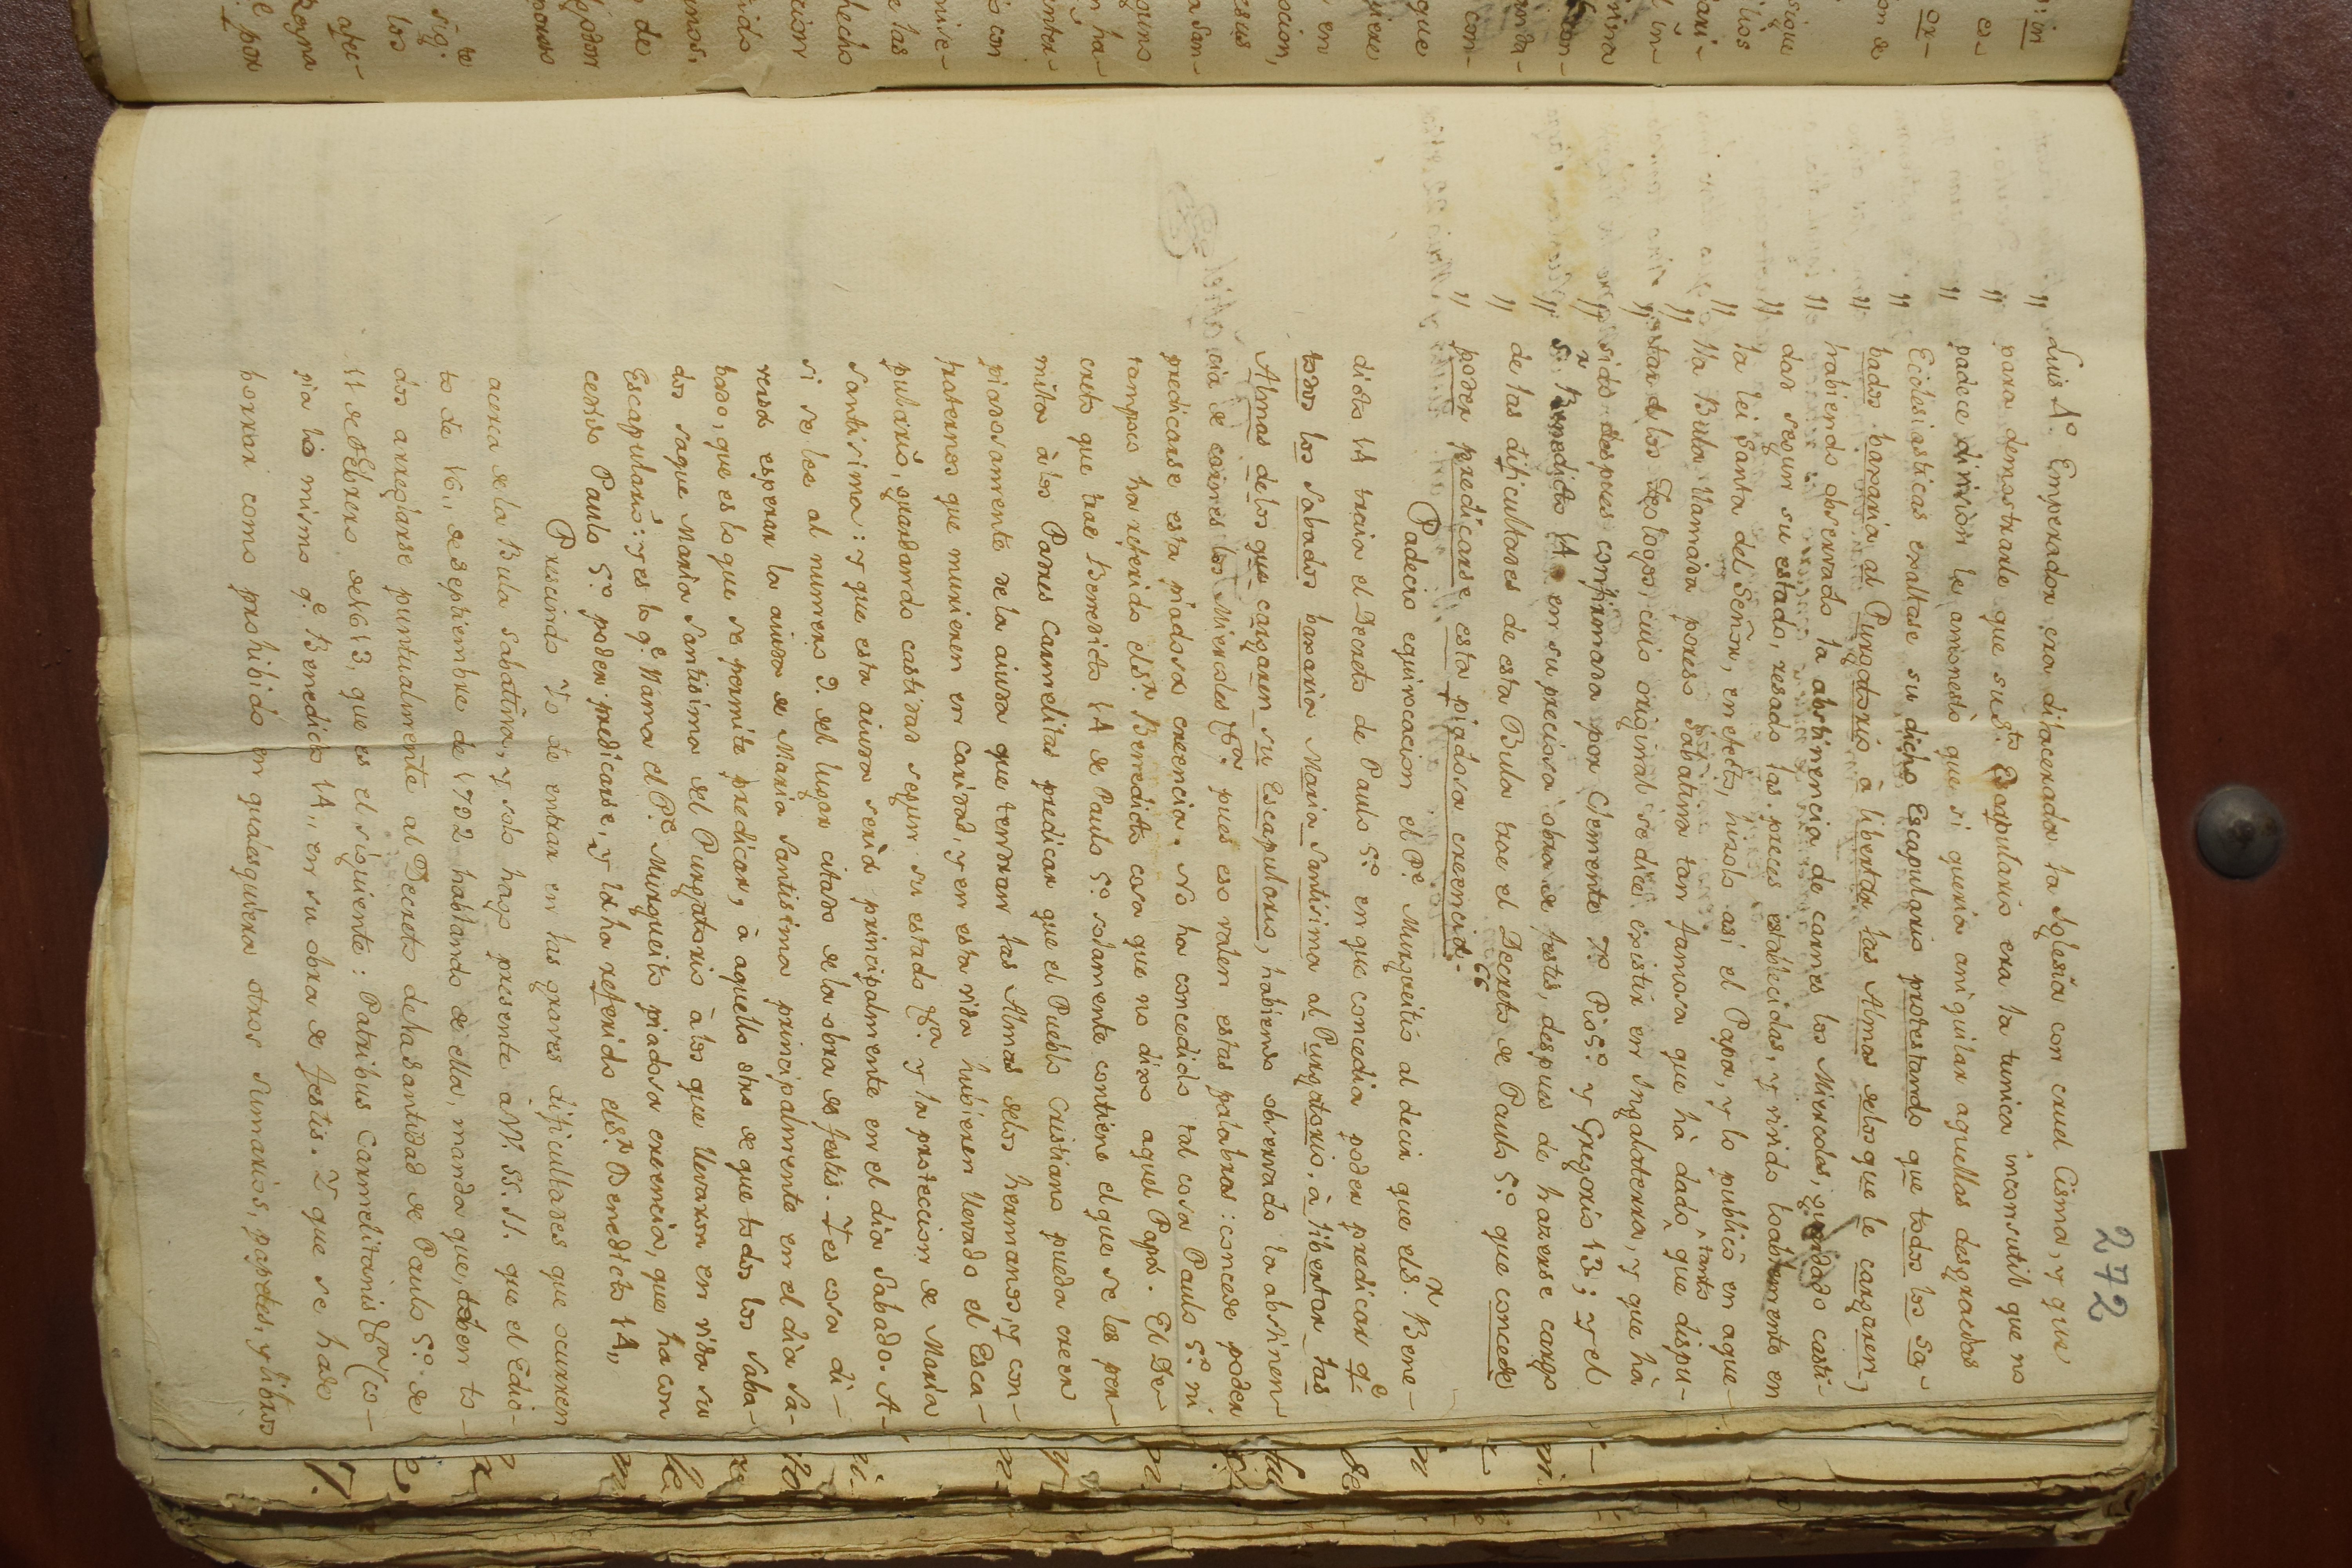 272
" Luis 4º. Emperador era dilacerada la Iglesia con cruel Cisma, y que
" para demostrarle que su Sto. Escapulario era la tunica inconsutil que no
" padece division le amonestò que si queria aniquilar aquellas desgracias
" Eclesiasticas exaltase su dicho Escapulario protestando que todos los Sa-
" bados baxaria al Purgatorio à libertar las Almas delos que le cargaren,
" habiendo observado la abstinencia de carnes los Miercoles, guardado casti-
" dad segun su estado, resado las preces establecidas, y vivido loablemente en
" la lei Santa del Señor, en efecto, hizolo asi el Papa, y lo publicò en aque-
" lla Bula llamada poreso Sabatina tan famosa que hà dado tanto que dispu-
" putar à los Teologos, cuio original se dice existir en Ingalaterra, y que hà
" sido despues confirmada por Clemente 7º. Pio 5º. y Gregorio 13; y el
" Sr. Benedicto 14 en su preciosa obra de festis, despues de haverse cargo
" de las dificultades de esta Bula trae el Decreto de Paulo 5º. que concede
" poder predicarse esta piadosa creencia. "
Padecio equivocacion el Pe. Murgueitio al decir que el Sr. Bene-
dicto 14 traia el Decreto de Paulo 5º. en que concedia poder predicar qe.
todos los Sabados baxaria Maria Santisima al Purgatorio, à libertar las
Almas delos que cargaren su Escapulario, habiendo observado la abstinen-
cia de carnes los Miercoles &a. pues eso valen estas palabras: concede poder
predicarse esta piadosa creencia. No ha concedido tal cosa Paulo 5º. ni
tampoco ha referido el Sr. Benedicto cosa que no dixo aquel Papa. El De-
creto que trae Benedicto 14 de Paulo 5º. solamente contiene el que se les per-
mita à los Padres Carmelitas predicar que el Pueblo Cristiano pueda creer
piadosamente dela aiuda que tendran las Almas delos hermanos, y con-
fraternos que murieren en caridad, y en esta vida hubieren llevado el Esca-
pulario, guardando castidad segun su estado &a. y la proteccion de Maria
Santisima: y que esta aiuda serà principalmente en el dia Sabado. A-
si se lee al numero 9. del lugar citado dela obra de festis. Y es cosa di-
versa esperar la aiuda de Maria Santisima principalmente en el dia Sa-
bado, que es lo que se permite predicar, à aquello otro de que todos los Saba-
dos saque Maria Santisima del Purgatorio à los que llevaron en vida su
Escapulario: y es lo qe. llama el Pe. Murgueitio piadosa creencia, que ha con
cedido Paulo 5º. poder predicarse, y lo ha referido el Sr. Benedicto 14,,
Prescindo Yo de entrar en las graves dificultades que ocurren
acerca dela Bula Sabatina, y solo hago presente à V. SS. II. que el Edic-
to de 16,, de Septiembre de 1792 hablando de ella, manda que, deben to-
dos arreglarse puntualmente al Decreto de la Santidad de Paulo 5º. de
11 de Febrero de 1613, que es el siguiente: Patribus Carmelitanis &a. (co-
pia lo mismo qe. Benedicto 14,, en su obra de festis. Y que se hade
borrar como prohibido en qualesquiera otros sumarios, papeles, y libros